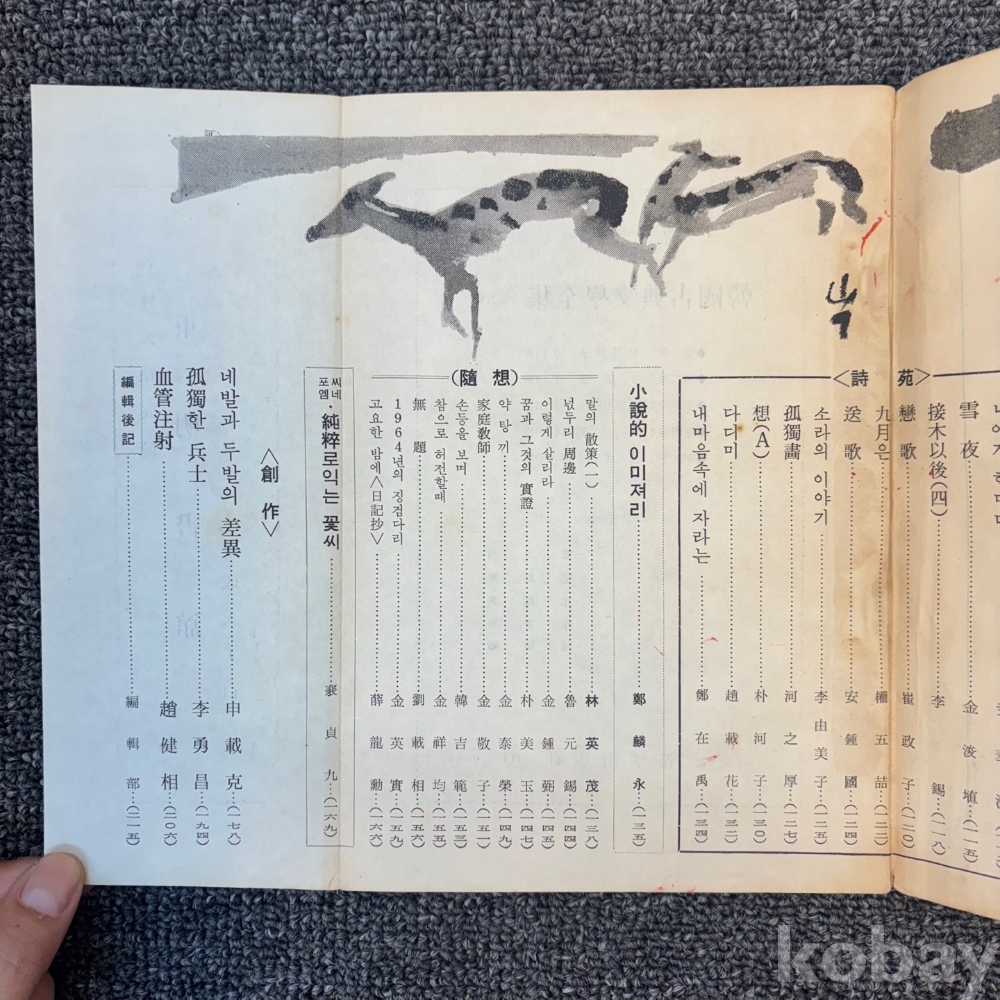 <詩苑>
雪夜……金浚埴…(一一五)
接木以後(四)……李錫…(一一八)
戀歌……崔政子…(一二〇)
九月은……權五喆…(一二二)
送歌……安鍾國…(一二四)
소라의 이야기……李由美子…(一二五)
孤獨畵……河之厚…(一二七)
想(A)……朴河子…(一三〇)
다디미……趙載花…(一三二)
내마음속에 자라는……鄭在禹…(一三四)
小說的 이미져리……鄭麟永…(一三五)
(隨想)
말의 散策(一)……林英茂…(一三八)
넋두리 周邊……魯元錫…(一四四)
이렇게 살리라……金鍾弼…(一四五)
꿈과 그것의 實證……朴美玉…(一四七)
약탕끼……金泰榮…(一四九)
家庭敎師……金敬子…(一五一)
손등을 보며……韓吉範…(一五三)
참으로 허전할때……金祥均…(一五五)
無題……劉載相…(一五六)
1964년의 징검다리……金英實…(一五九)
고요한 밤에<日記抄>……薛龍勳…(一六六)
씨네포엠·純粹로익는 꽃씨……裵貞九…(一六九)
<創作>
네발과 두발의 差異……申載克…(一七八)
孤獨한 兵士……李勇昌…(一九四)
血管注射……趙健相…(二〇六)
編輯後記……編輯部…(二一五)
kobay